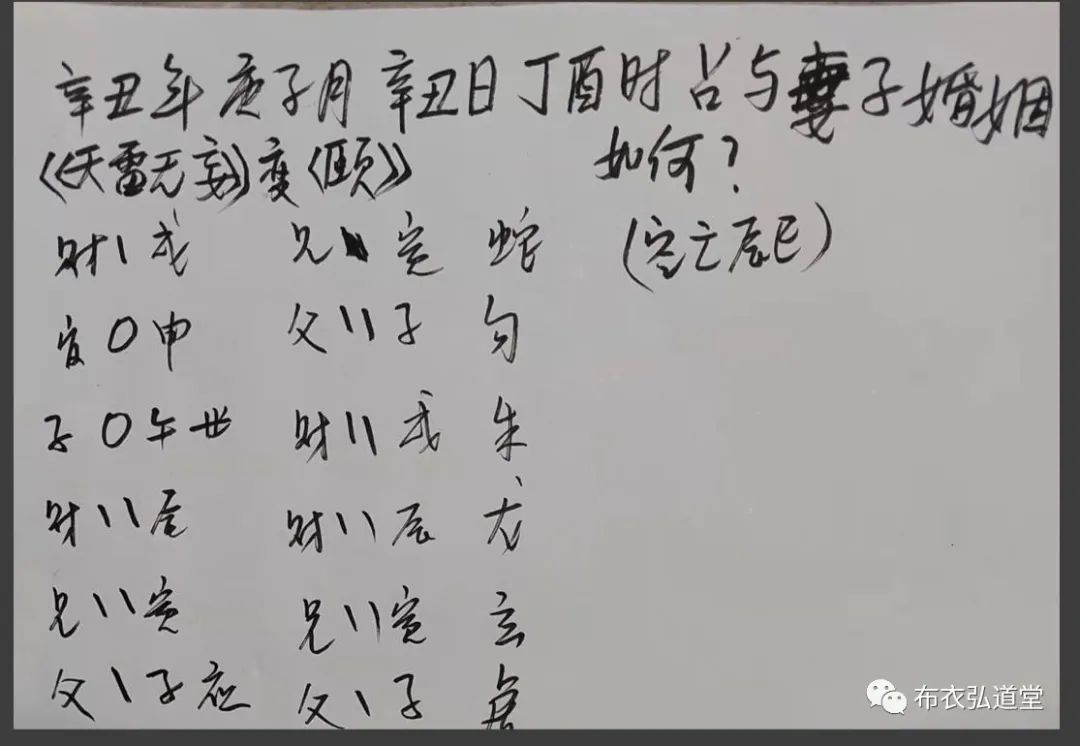 辛丑年 庚子月 辛丑日 丁酉时 占与妻子婚姻
《天雷无妄》变《颐》 如何?
财、戌 兄、寅 蛇 (空亡辰巳)
官〇申 父〃子 勾
子〇午世 财〃戌 朱
财〃辰 财〃辰 龙
兄〃寅 兄〃寅 玄
父、子应 父、子 虎
布衣弘道堂